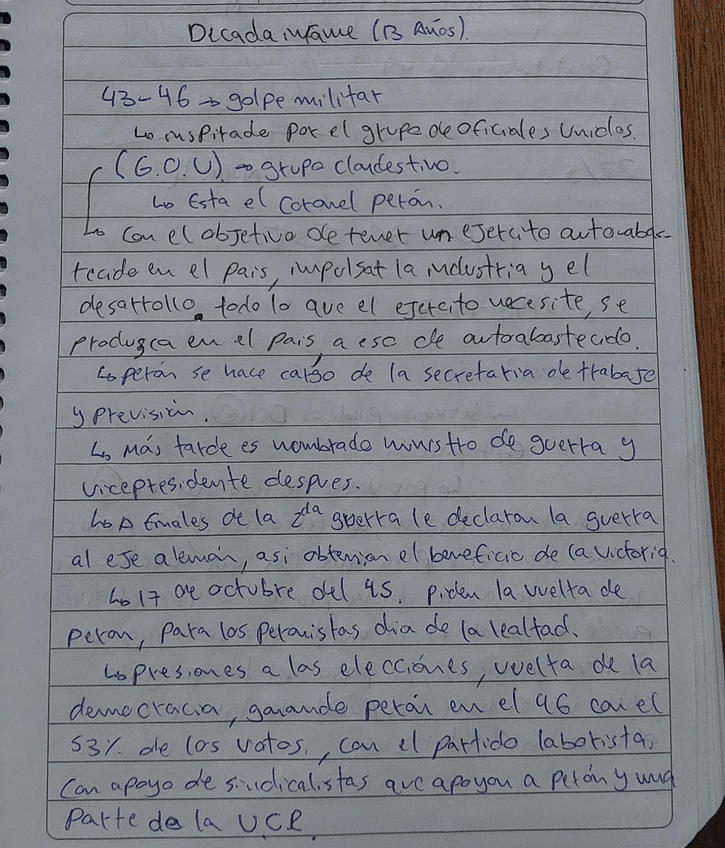 Decada infame (13 Años).
43-46 → golpe militar
↳ inspirado por el grupo de oficiales Unidos.
(G.O.U) → grupo clandestivo.
↳ Esta el Coronel perón.
↳ Con el objetivo de tener un ejercito autoabas-
tecido en el pais, impulsar la industria y el
desarrollo. todo lo que el ejercito necesite, se
produzca en el pais, a eso de autoabastecido.
↳ perón se hace cargo de la secretaria de trabajo
y previsión.
↳ Más tarde es nombrado ministro de guerra y
vicepresidente despues.
↳ A finales de la 2da guerra le declaran la guerra
al eje alemán, asi obtenian el beneficio de la victoria.
↳ 17 de octubre del 45. Piden la vuelta de
peron, para los peronistas dia de la lealtad.
↳ presiones a las elecciónes, vuelta de la
democracia, ganando perón en el 46 con el
53% de los votos, con el partido laborista,
con apoyo de sindicalistas que apoyan a perón y una
parte de la UCR